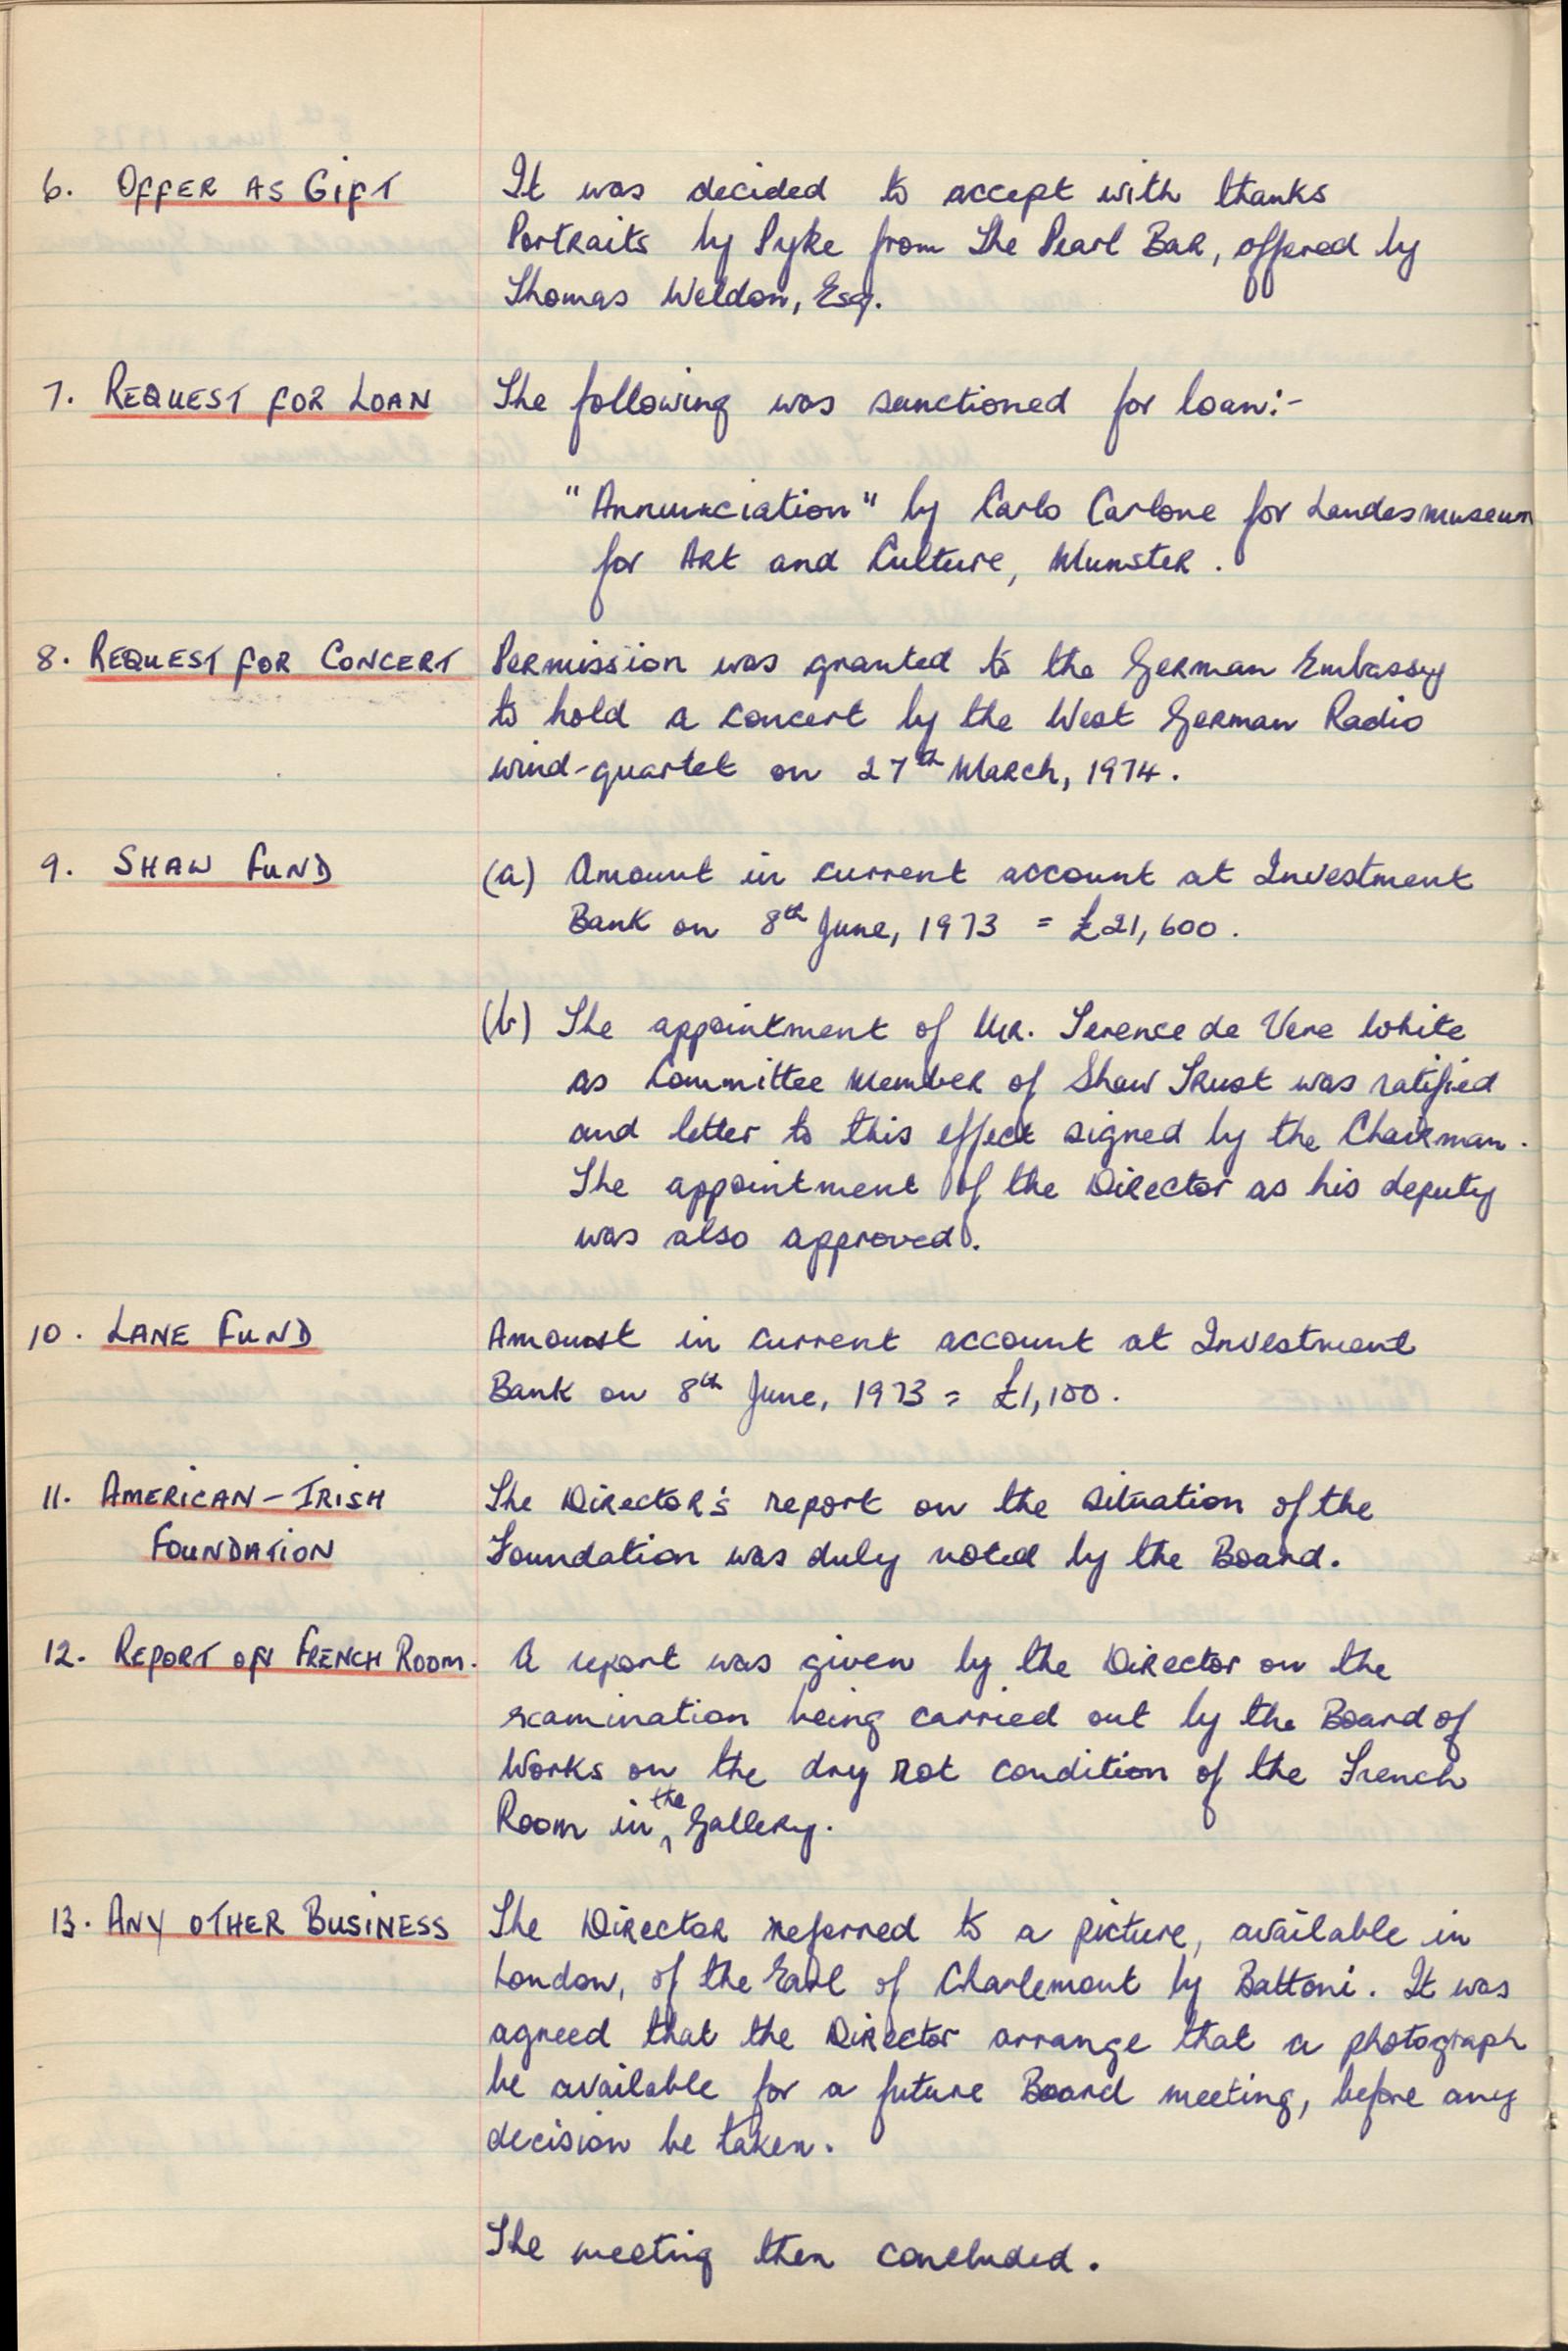 6. OFFER AS GIFT
It was decided to accept with thanks
Portraits by Pyke from The Pearl Bar, offered by
Thomas Weldon, Esq.
7. REQUEST FOR LOAN
The following was sanctioned for loan:-
"Annunciation" by Carlo Carlone for Landesmuseum
for Art and Culture, Munster.
8. REQUEST FOR CONCERT
Permission was granted to the German Embassy
to hold a concert by the West German Radio
wind-quartet on 27th March, 1974.
9. SHAW FUND
(a) Amount in current account at Investment
Bank on 8th June, 1973 = £21,600.
(b) The appointment of Mr. Terence de Vere White
as Committee Member of Shaw Trust was ratified
and letter to this effect signed by the Chairman.
The appointment of the Director as his deputy
was also approved.
10. LANE FUND
Amount in current account at Investment
Bank on 8th June, 1973 = £1,100.
11. AMERICAN-IRISH
FOUNDATION
The Director's report on the situation of the
Foundation was duly noted by the Board.
12. REPORT ON FRENCH ROOM.
A report was given by the Director on the
examination being carried out by the Board of
Works on the dry rot condition of the French
Room in the Gallery.
13. ANY OTHER BUSINESS
The Director referred to a picture, available in
London, of the Earl of Charlemont by Battoni. It was
agreed that the Director arrange that a photograph
be available for a future Board meeting, before any
decision be taken.
The meeting then concluded.